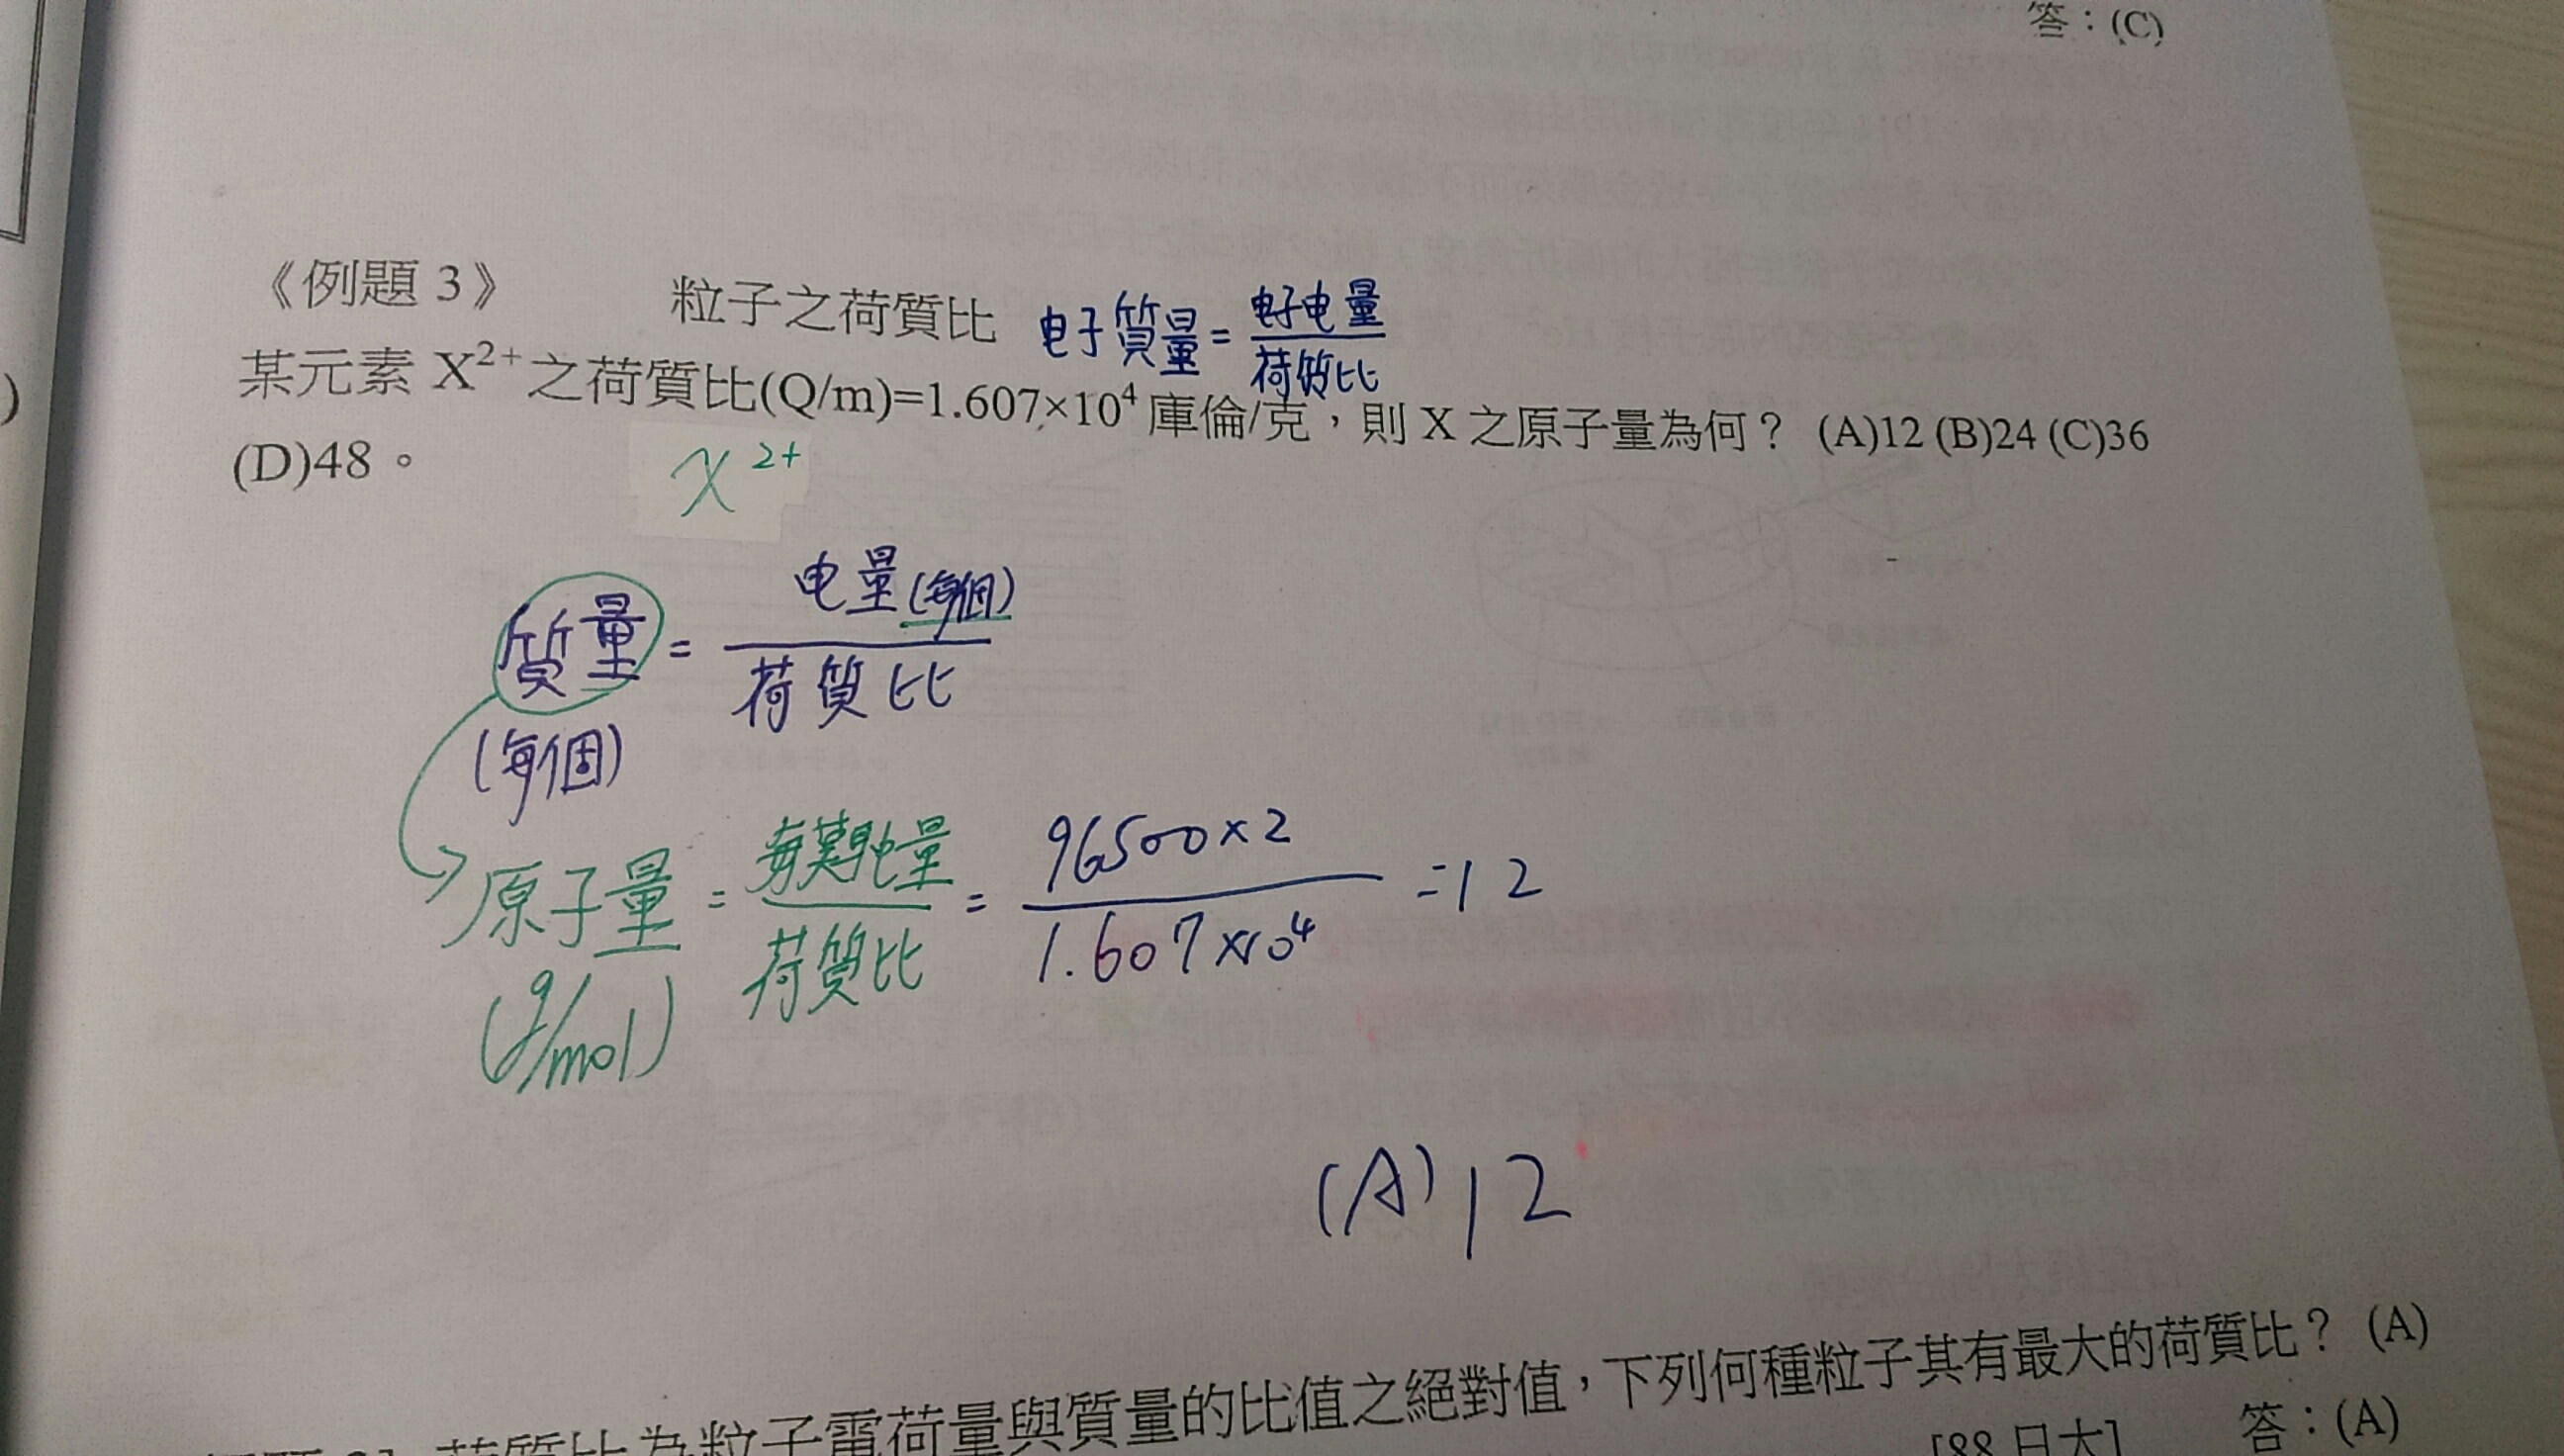 答：(C)
《例題 3》 粒子之荷質比 电子質量 = 电子电量 / 荷質比
某元素 X²⁺之荷質比(Q/m)=1.607×10⁴ 庫倫/克，則 X 之原子量為何？ (A)12 (B)24 (C)36
(D)48。
X²⁺
質量 = 电量(每個) / 荷質比
(每個)
原子量 = 每莫耳电量 / 荷質比 = 96500×2 / 1.607×10⁴ =12
(g/mol)
(A)12
荷質比為粒子電荷量與質量的比值之絕對值，下列何種粒子其有最大的荷質比？ (A)
[88 日大] 答：(A)